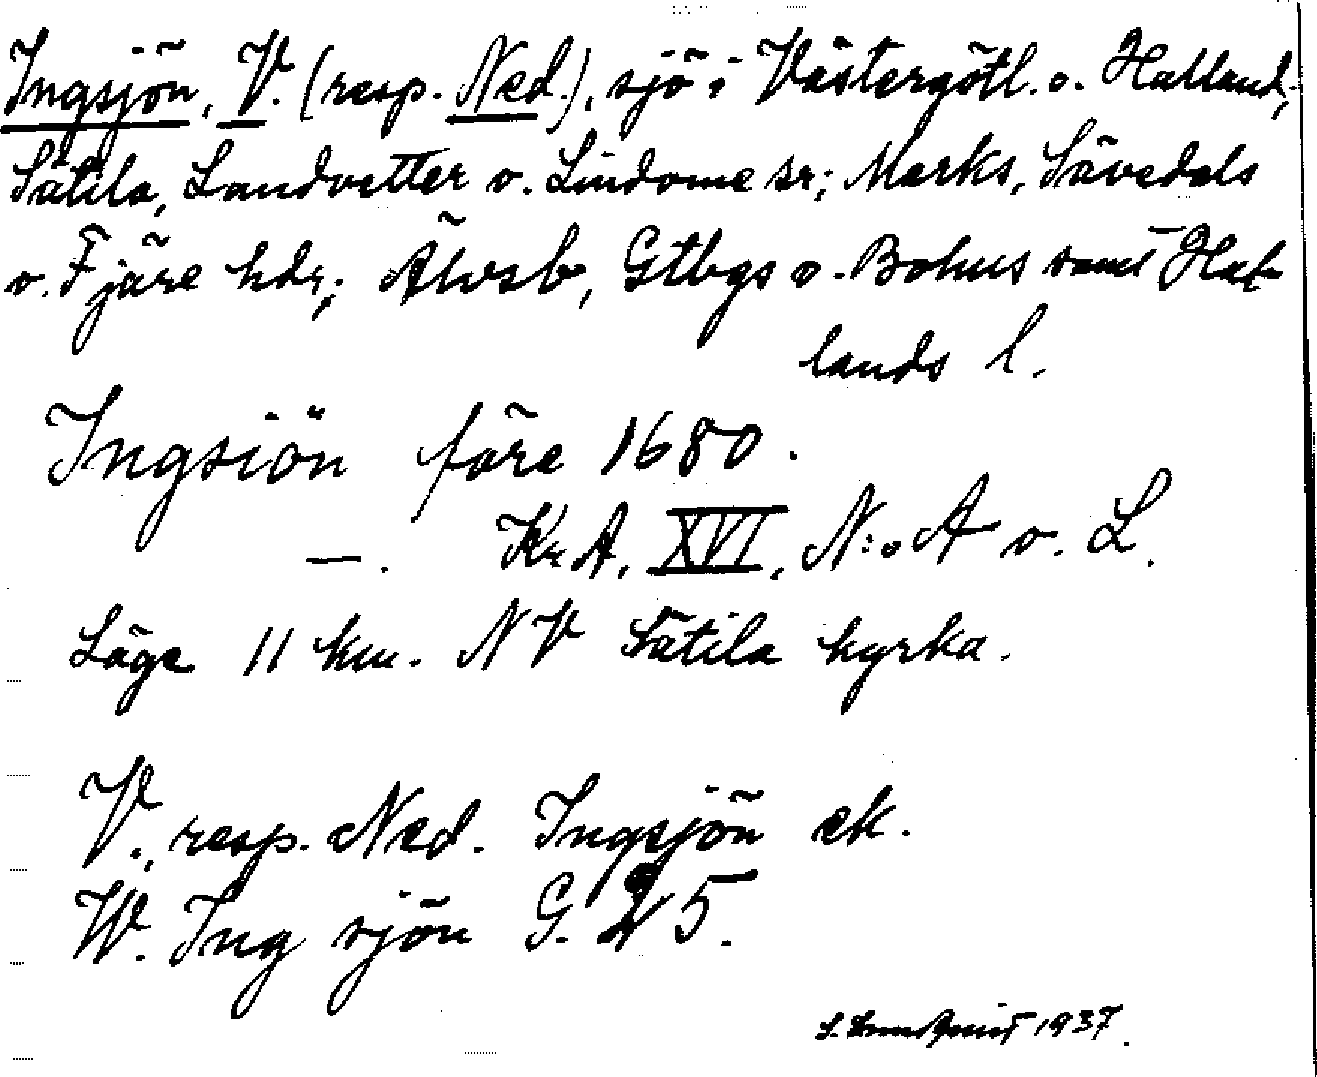 Ingsjön, V. (resp. Ned.), sjö i Västergötl. o. Halland;
Sätila, Landvetter o. Lindome sr; Marks, Sävedals
o. Fjäre hdr; Älvsb, Gtbgs o. Bohus samt Hal-
lands l.
Ingsiön före 1680.
—. Kr. A. XVI, N:o A o. L.
Läge 11 km. NV Sätila kyrka.
V., resp. Ned. Ingsjön ek.
W. Ing sjön G. 25.
S. Lundquist 1937.